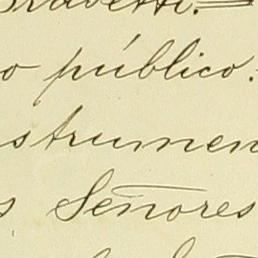 o público.
strumen
s Señores